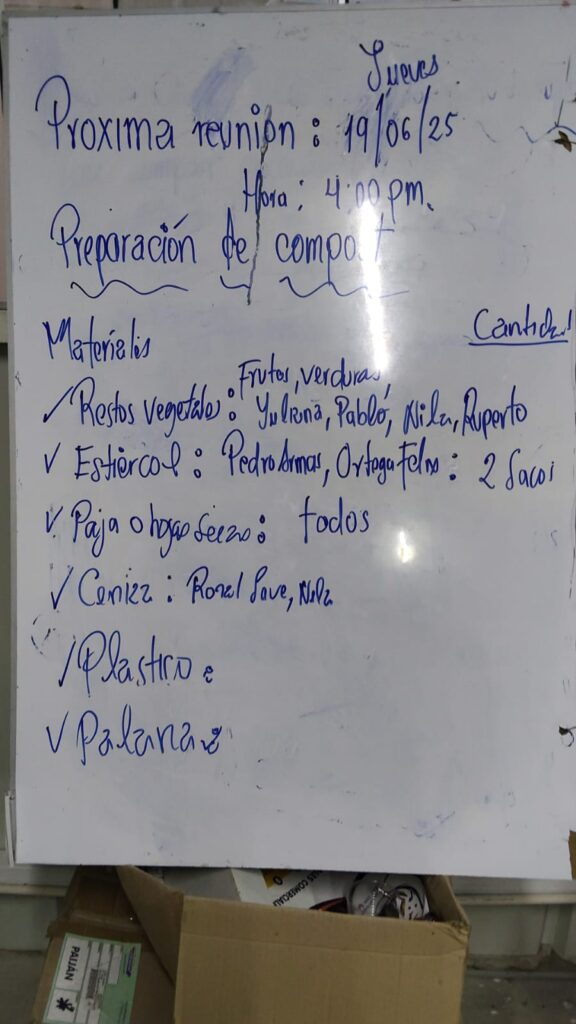 Jueves
Próxima reunión : 19/06/25
Hora : 4:00 pm.
Preparación de compost
Materiales
Cantidad
✓ Restos vegetales : Frutos, verduras,
Yuliana, Pablo, Nila, Ruperto
✓ Estiércol : Pedro Armas, Ortega Felno : 2 Sacos
✓ Paja o hojas secas : todos
✓ Ceniza : Nila
✓ Plastico :
✓ Palana :
AS COMERCIAL
PAIJAN